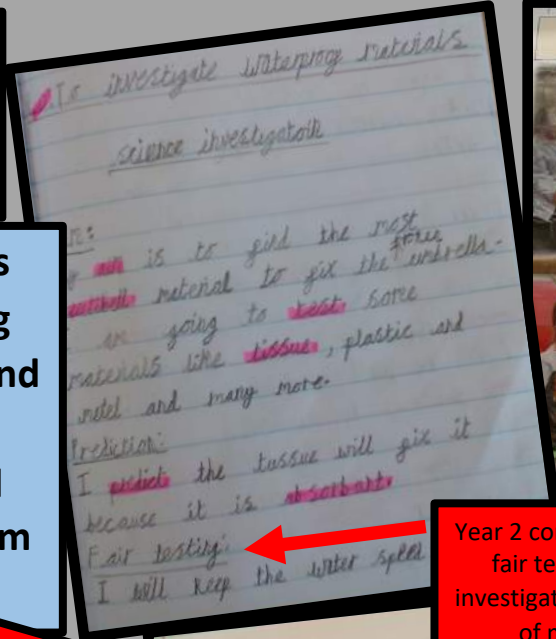 To investigate waterproof materials
science investigatoin
is to find the most
material to fix the umbrella.
going to test some
materials like tissue, plastic and
metel and many more.
Prediction:
I predict the tussue will fix it
because it is absorbant.
Fair testing:
I will keep the water
s
g
nd
m
Year 2 co
fair te
investigat
of